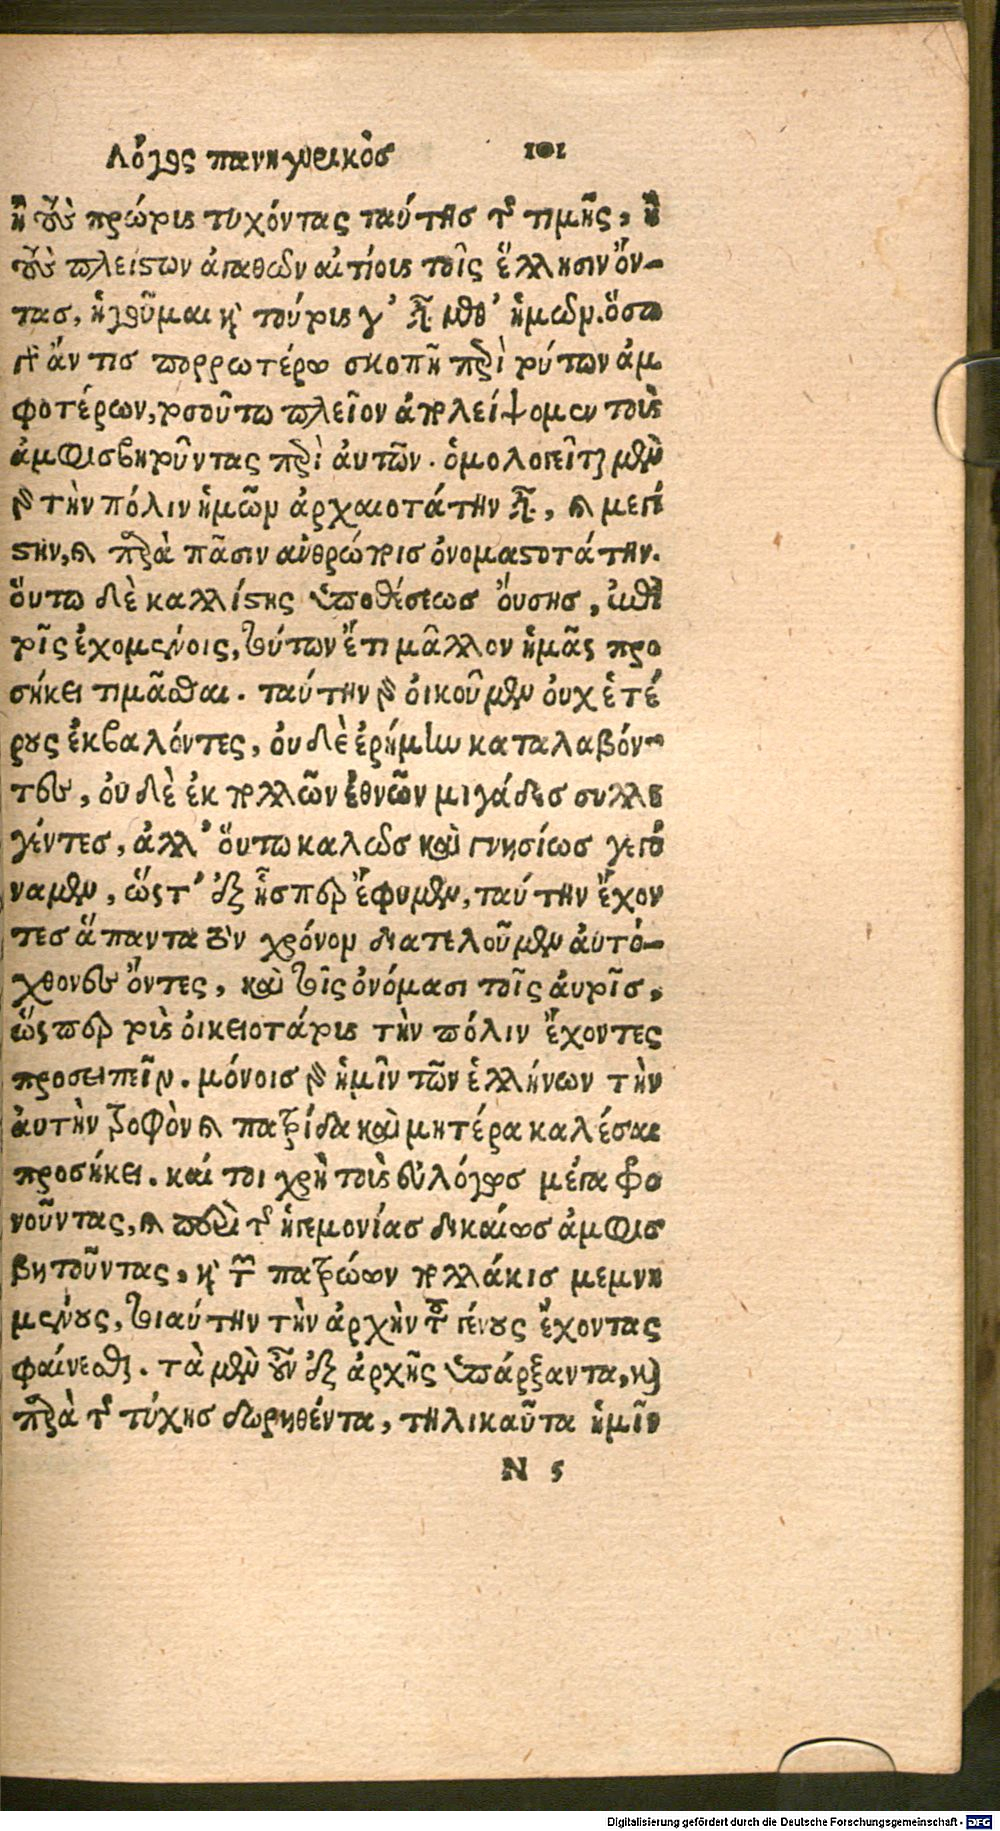 Λόγος πανηγυρικὸσ 101
ἢ τοὺσ πρώτους τυχόντας ταύτησ τῆσ τιμῆς, ἢ
τοὺσ πλείστων ἀγαθῶν αἰτίους τοῖς ἕλλησιν ὄν-
τασ, ἡγοῦμαι καὶ τούτους γ' εἶναι μεθ' ἡμῶν. ὅσω
δ' ἄν τισ πορρωτέρω σκοπῇ περὶ τούτων ἀμ
φοτέρων, τοσοῦτω πλεῖον ἀπολείψομεν τοὺς
ἀμφισβητοῦντας περὶ ἀυτῶν. ὁμολογεῖται μὲν
γὰρ τὴν πόλιν ἡμῶν ἀρχαιοτάτην εἶναι, καὶ μεγί
στην, καὶ παρὰ πᾶσιν ἀνθρώποισ ὀνομαστοτάτην.
ὅυτω δὲ καλλίστης ὑποθέσεωσ ὄυσησ, ἐπὶ
τοῖς ἐχομένοις, τούτων ἔτι μᾶλλον ἡμᾶς προ
σήκει τιμᾶσθαι. ταύτην γὰρ ὀικοῦμεν ὀυχ ἑτέ
ρους ἐκβαλόντες, ὀυδὲ ἐρήμην καταλαβόν-
τεσ, ὀυδὲ ἐκ πολλῶν ἐθνῶν μιγάδεσ συλλε
γέντεσ, ἀλλ' ὅυτω καλῶσ καὶ γνησίωσ γεγό
ναμεν, ὥστ' ἐξ ἧσπερ ἔφυμεν, ταύτην ἔχον
τεσ ἅπαντα τὸν χρόνον διατελοῦμεν ἀυτό-
χθονεσ ὄντες, καὶ τοῖς ὀνόμασι τοῖς ἀυτοῖσ,
ὥσπερ τοὺς ὀικειοτάτους τὴν πόλιν ἔχοντες
προσειπεῖν. μόνοισ γὰρ ἡμῖν τῶν ἑλλήνων τὴν
ἀυτὴν τροφὸν καὶ πατρίδα καὶ μητέρα καλέσαι
προσήκει. καί τοι χρὴ τοὺς εὐλόγωσ μέγα φρο
νοῦντας, καὶ περὶ τῆσ ἡγεμονίασ δικαίωσ ἀμφισ
βητοῦντας, καὶ τῶν πατρώων πολλάκισ μεμνη
μένους, τοιαύτην τὴν ἀρχὴν τοῦ γένους ἔχοντας
φαίνεσθαι. τὰ μὲν οὖν ἐξ ἀρχῆς ὑπάρξαντα, καὶ
παρὰ τῆσ τύχησ δωρηθέντα, τηλικαῦτα ἡμῖν
N 5
Digitalisierung gefördert durch die Deutsche Forschungsgemeinschaft - DFG